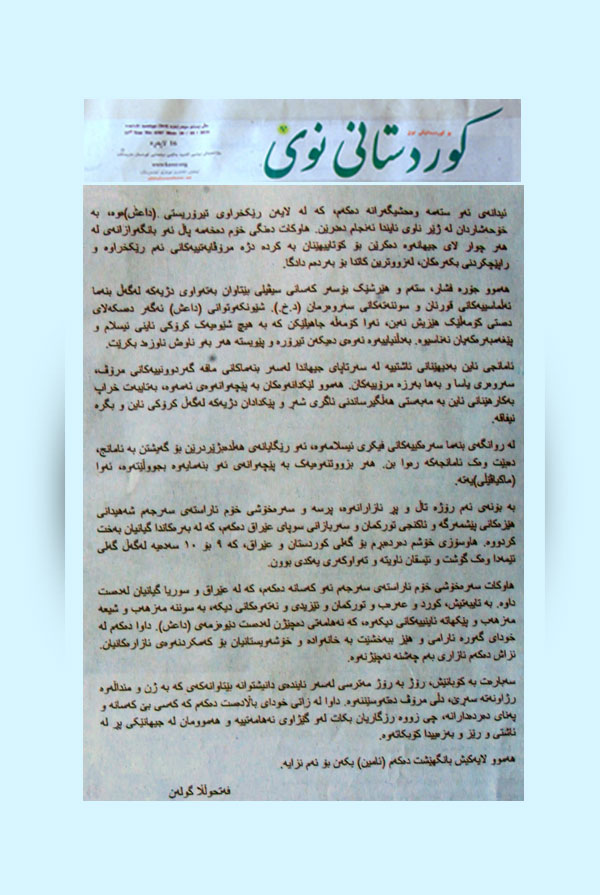 کوردستانی نوێ
16 لاپەڕە
ئیدانەی ئەو ستەمە وەحشیگەرانە دەکەم، کە لە لایەن ڕێکخراوی تیرۆریستی (داعش)ەوە، بە
خۆحەشاردان لە ژێر ناوی ئاییندا ئەنجام دەدرێن. هاوکات دەنگی خۆم دەخەمە پاڵ ئەو بانگەوازانەی لە
هەر چوار لای جیهانەوە دەکرێن بۆ کۆتاییهێنان بە کردە دژە مرۆڤایەتییەکانی ئەم ڕێکخراوە و
ڕاپێچکردنی بکەرەکان، لەزووترین کاتدا بۆ بەردەم دادگا.
هەموو جۆرە فشار، ستەم و هێرشێک بۆسەر کەسانی سیڤیلی بێتاوان بەتەواوی دژیەکە لەگەڵ بنەما
ئەڵماسییەکانی قورئان و سوننەتەکانی سەروەرمان (د.خ.). شێوەنکەوتوانی (داعش) ئەگەر دەسکەلای
دەستی کۆمەڵێک هێزیش نەبن، ئەوا کۆمەڵە جاهیلێکن کە بە هیچ شێوەیەک کرۆکی ئاینی ئیسلام و
پێغەمبەرەکەیان نەناسیوە. بەدڵنیاییەوە ئەوەی دەیکەن تیرۆرە و پێویستە هەر بەو ناوەش ناوزەد بکرێت.
ئامانجی ئاین بەدیهێنانی ئاشتییە لە سەرتاپای جیهاندا لەسەر بنەماکانی مافە گەردوونییەکانی مرۆڤ،
سەروەری یاسا و بەها بەرزە مرۆییەکان. هەموو لێکدانەوەکان بە پێچەوانەی ئەمەوە، بەتایبەت خراپ
بەکارهێنانی ئاین بە مەبەستی هەڵگیرساندنی ئاگری شەڕ و پێکدادان دژیەکە لەگەڵ کرۆکی ئاین و بگرە
نیفاقە.
لە ڕوانگەی بنەما سەرەکییەکانی فیکری ئیسلامەوە، ئەو ڕێگایانەی هەڵدەبژێردرێن بۆ گەیشتن بە ئامانج،
دەبێت وەک ئامانجەکە ڕەوا بن. هەر بزووتنەوەیەک بە پێچەوانەی ئەو بنەمایەوە بجووڵێتەوە، ئەوا
(ماکیاڤێلی)یەتە.
بە بۆنەی ئەم ڕۆژە تاڵ و پڕ ئازارانەوە، پرسە و سەرەخۆشی خۆم ئاراستەی سەرجەم شەهیدانی
هێزەکانی پێشمەرگە و تاکنجی تورکمان و سەربازانی سوپای عێراق دەکەم، کە لە بەرەکاندا گیانیان بەخت
کردووە. هاوسۆزی خۆشم دەردەبڕم بۆ گەلی کوردستان و عێراق، کە ٩ بۆ ١٠ سەدەیە لەگەڵ گەلی
ئێمەدا وەک گۆشت و ئێسقان ئاوێتە و تەواوکەری یەکدی بوون.
هاوکات سەرەخۆشی خۆم ئاراستەی سەرجەم ئەو کەسانە دەکەم، کە لە عێراق و سوریا گیانیان لەدەست
داوە. بە تایبەتیش، کورد و عەرەب و تورکمان و ئێزیدی و نەتەوەکانی دیکە، بە سوننە مەزهەب و شیعە
مەزهەب و پێکهاتە ئاینییەکانی دیکەوە، کە نەهامەتی دەچێژن لەدەست دێوەزمەی (داعش). داوا دەکەم لە
خودای گەورە ئارامی و هێز ببەخشێت بە خانەوادە و خۆشەویستانیان بۆ کەمکردنەوەی ئازارەکانیان.
نزاش دەکەم ئازاری بەم چەشنە نەچێژنەوە.
سەبارەت بە کۆبانێش، ڕۆژ بە ڕۆژ مەترسی لەسەر ئایندەی دانیشتوانە بێتاوانەکەی کە بە ژن و منداڵەوە
ڕژاونەتە سەرێ، دڵی مرۆڤ دەتەوسێننەوە. داوا لە زاتی خودای باڵادەست دەکەم کە کەسی بێ کەسانە و
پەنای دەردەدارانە، چی زووە ڕزگاریان بکات لەو گێژاوی نەهامەتییە و هەموومان لە جیهانێکی پڕ لە
ئاشتی و ڕێز و بەزەییدا کۆبکاتەوە.
هەموو لایەکیش بانگهێشت دەکەم (ئامین) بکەن بۆ ئەم نزایە.
فەتحوڵڵا گولەن